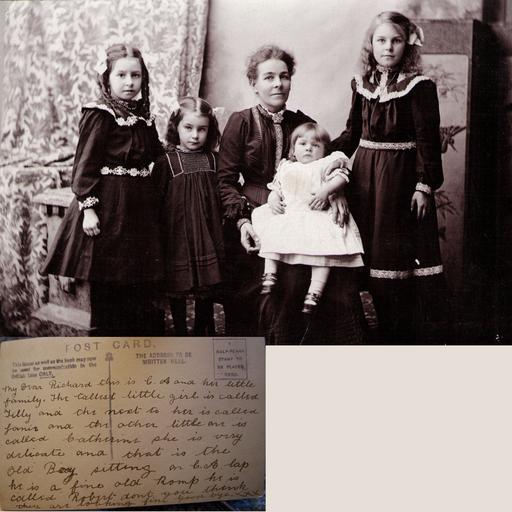 POST CARD.
This Space as well as the back may now be used for communication in the British Isles ONLY.
THE ADDRESS TO BE WRITTEN HERE.
HALF-PENNY STAMP TO BE PLACED HERE.
My Dear Richard this is C. A and her little
family. The tallest little girl is called
Tilly and the next to her is called
fanis and the other little one is
called Catherine she is very
delicate and that is the
Old Boy sitting on C.A. lap
he is a fine old Romp he is
called Robert dont you think
they are looking fine good bye xxx